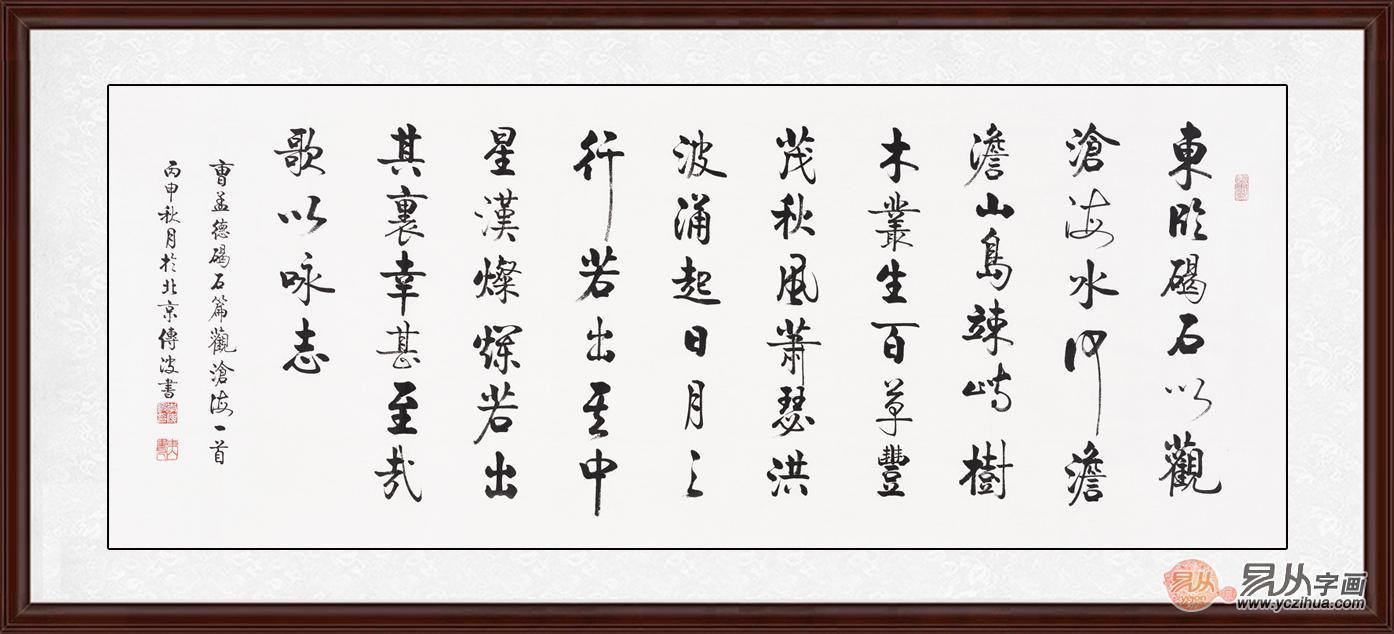 東臨碣石以觀
滄海水何澹
澹山島竦峙樹
木叢生百草豐
茂秋風蕭瑟洪
波涌起日月之
行若出其中
星漢燦爛若出
其裏幸甚至哉
歌以咏志
曹孟德碣石篇觀滄海一首
丙申秋月於北京傳波書
易从
yicong
易从字画
www.yczihua.com